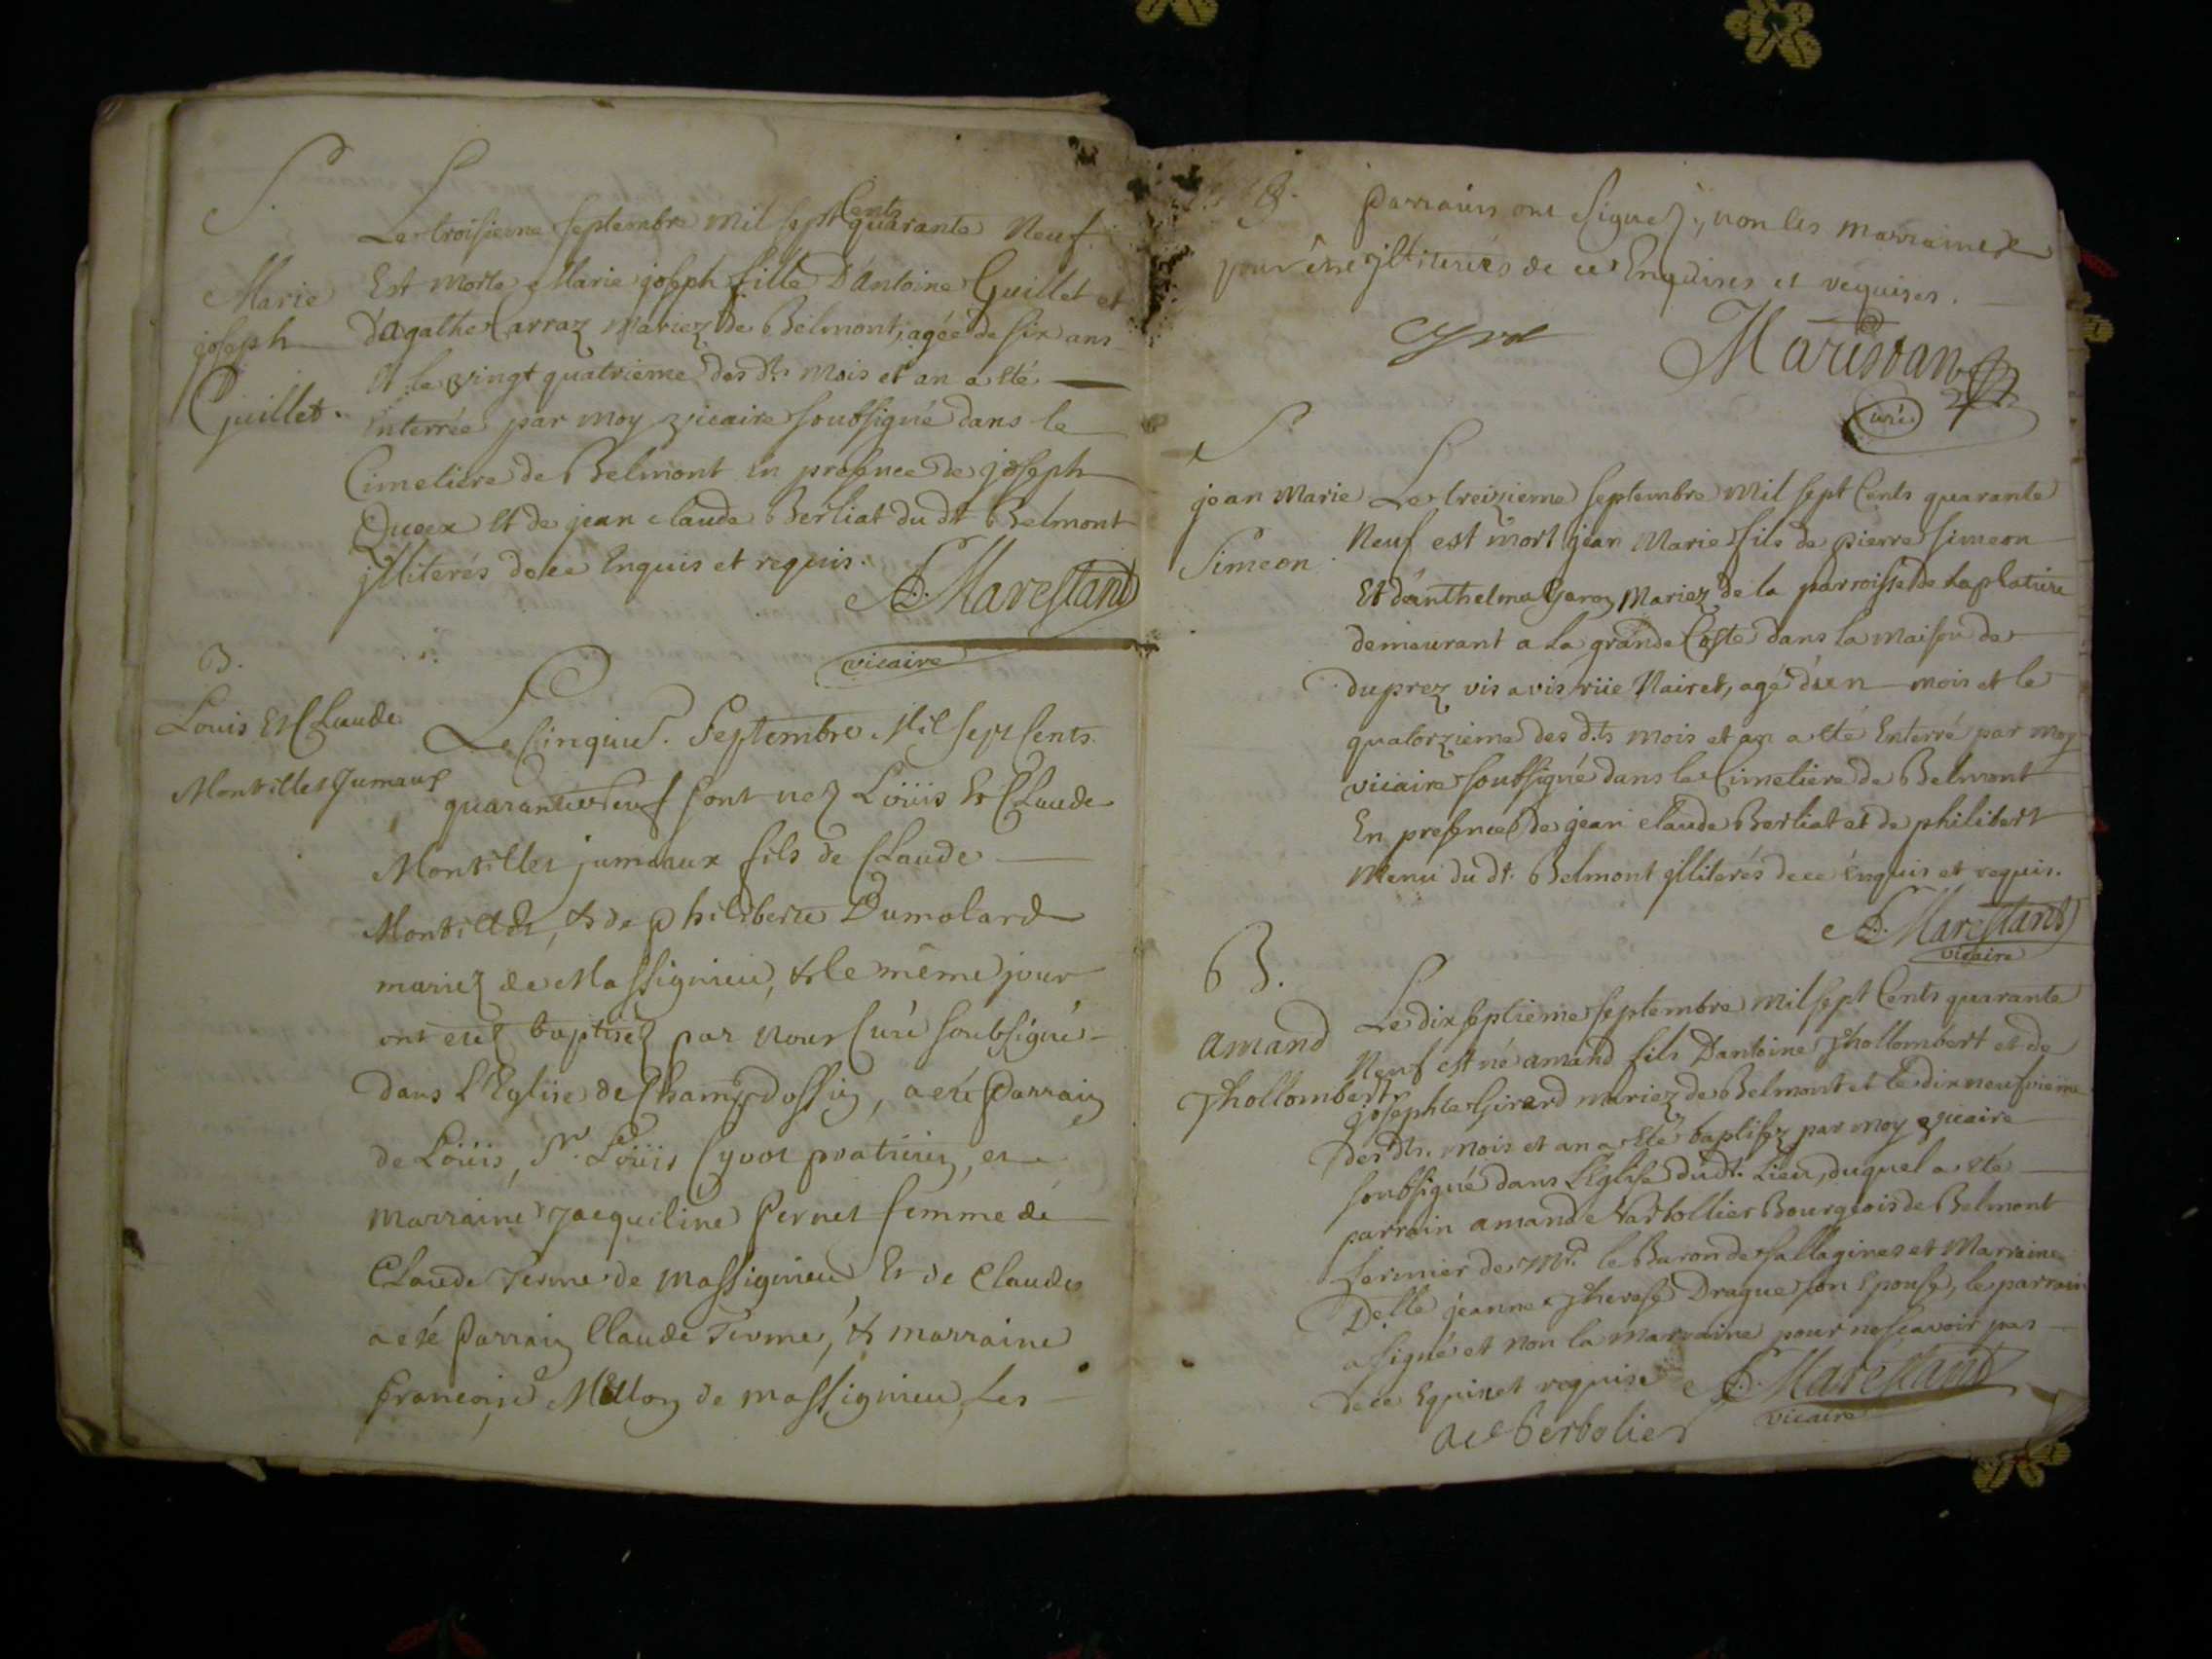 S.
Marie
joseph
Guillet.
Le troisieme septembre mil sept Cents quarante Neuf
Est morte Marie joseph fille D'antoine Guillet et
d'agathe Carraz Mariez de Belmont, agée de six ans
Et le vingt quatrieme des dts. mois et an a eté
Enterrée par moy vicaire soubsigné dans le
Cimetiere de Belmont En presence de joseph
et de jean claude Berliat du dt Belmont
jlliterés de ce Enquis et requis.
Marestant
vicaire
B.
Louis Et Claude
Montillet Jumeaux
Le Cinquie. Septembre Mil sept Cents
quarante neuf sont nez Loüis Et Claude
Montillet jumeaux fils de Claude
Montillet, & de philiberte Dumolard
mariez de Massignieu, & le même jour
ont etez baptisez par Nous Curé soubsigné
dans L'Eglise de Champdossin, a eté Parrain
de Loüis, Sr. Loüis Cyvot praticien, et
marraine Jacqueline Pernet femme de
Claude Terme de massignieu Et de Claude
a eté Parrain Claude Terme, & marraine
francoise de massignieu, Les
B. Parrains ont signez, non les marraines
pour être jlliterées de ce Enquises et requises.
Cyvot
Marestan
Curé
S.
jean Marie
Simeon.
Le treizieme septembre Mil sept Cents quarante
Neuf est mort jean Marie fils de pierre simeon
Et d'anthelma Mariez de la parroisse de Laplatiere
demeurant a la grande Coste dans la maison de
duprez vis a vis rüe Nairet, agé d'un mois et le
quatorzieme des d.ts mois et an a eté Enterré par moy
vicaire soubsigné dans le Cimetiere de Belmont
En presence de jean claude Berliat et de philibert
Menu du dt. Belmont jlliterés de ce Enquis et requis.
Marestant
vicaire
B.
amand
Thollombert
Le dix septieme septembre mil sept Cents quarante
Neuf est né amand fils D'antoine Thollombert et de
josephte Girard mariez de Belmont et le dix neufvieme
des dts. mois et an a eté baptisez par moy vicaire
soubsigné dans L'Eglise du dt. Lieu, duquel a eté
parrain amand Bourgeois de Belmont
fermier de Mr. le Baron de et Marraine
Delle jeanne Therese Drague son Epouse, le parrain
a signé et non la marraine pour ne scavoir pas
de ce Equis et requise
Marestant
vicaire